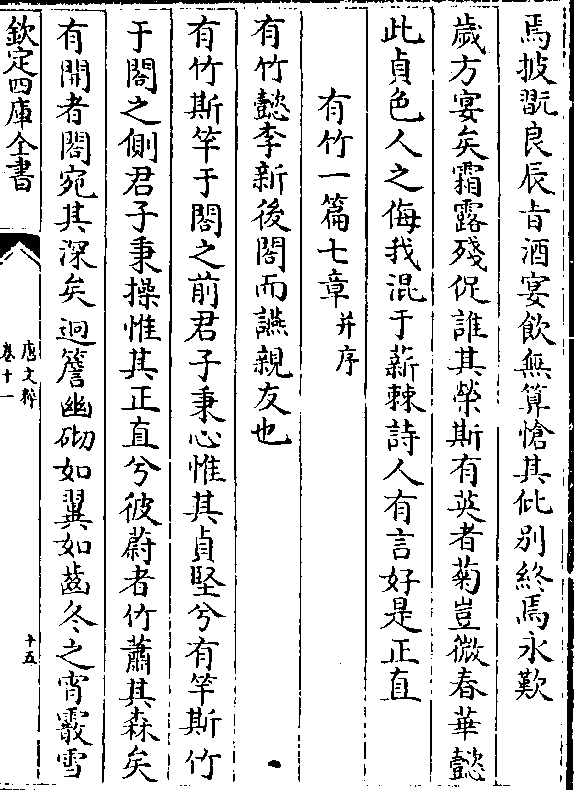 焉披翫良辰旨酒宴飲無算愴其仳別終焉永歎
歲方宴矣霜露殘促誰其榮斯有英者菊豈微春華懿
此貞色人之侮我混于薪棘詩人有言好是正直
有竹一篇七章 并序
有竹懿李新後閤而讌親友也
有竹斯竿于閤之前君子秉心惟其貞堅兮有竿斯竹
于閤之側君子秉操惟其正直兮彼蔚者竹蕭其森矣
有開者閤宛其深矣迴簷幽砌如翼如齒冬之宵霰雪
欽定四庫全書
唐文粹
卷十一
十五